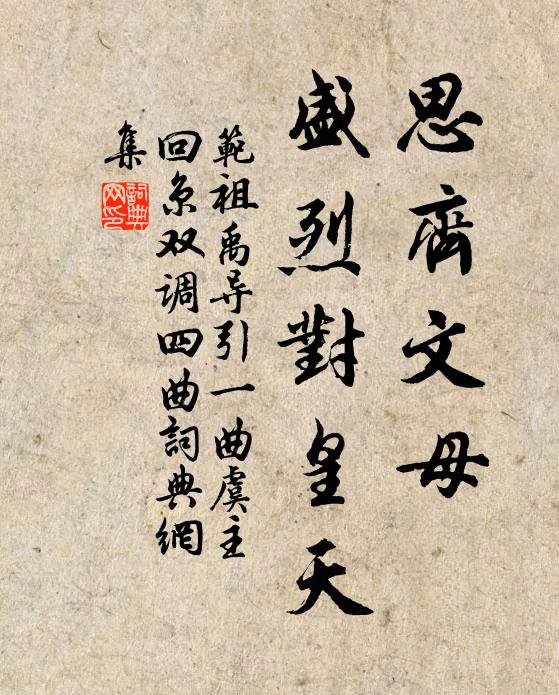 思齊文母
盛烈對皇天
範祖禹导引一曲虞主
回京双调四曲詞典網
集
詞典
网印